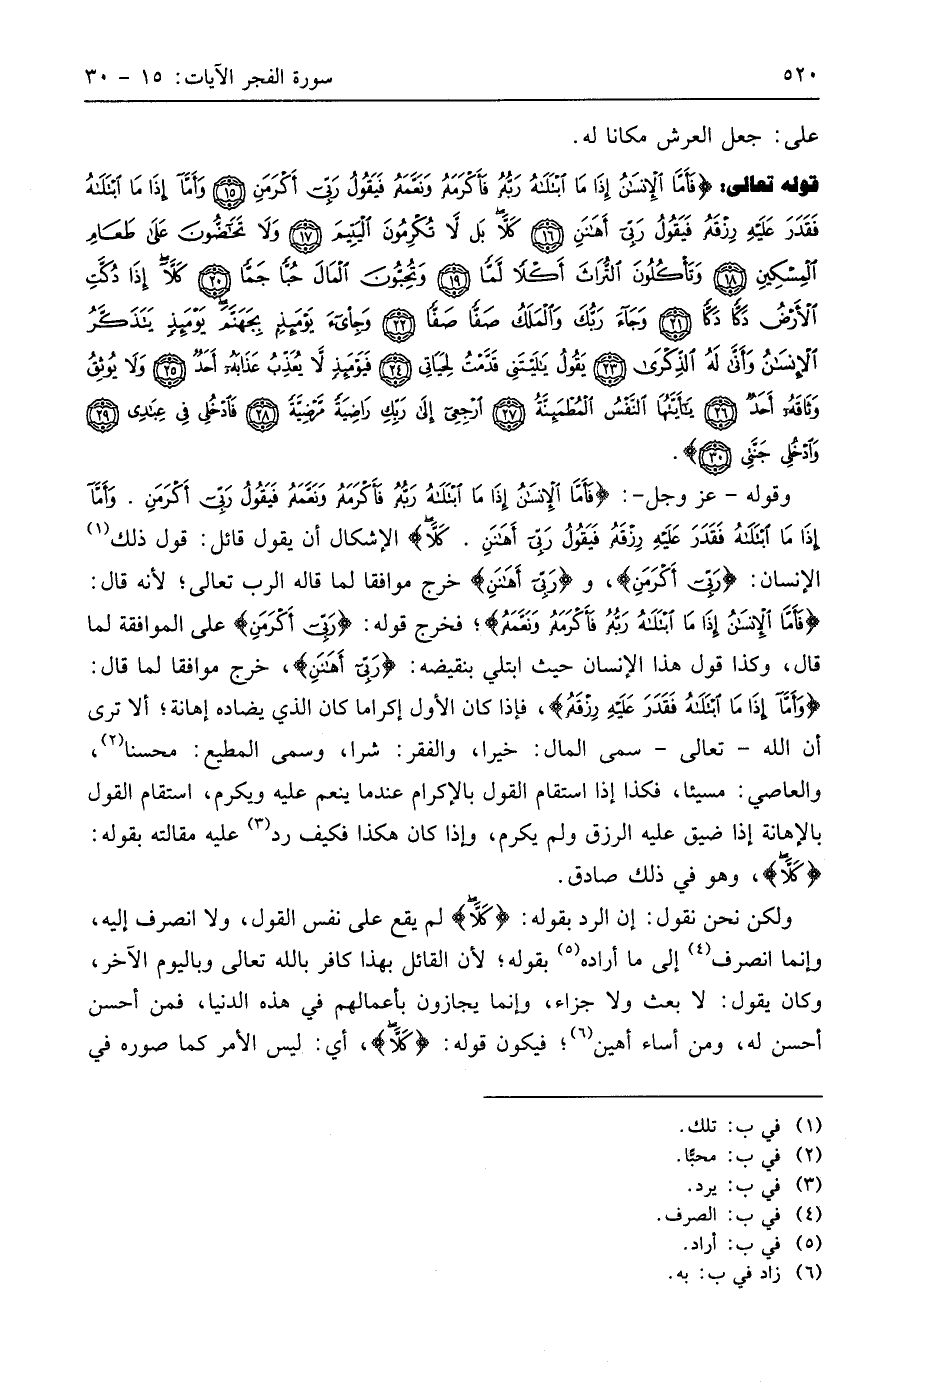 ٥٢٠ سورة الفجر الآيات: ١٥ - ٣٠
على: جعل العرش مكانا له.
قوله تعالى: ﴿فَأَمَّا ٱلْإِنسَٰنُ إِذَا مَا ٱبْتَلَىٰهُ رَبُّهُۥ فَأَكْرَمَهُۥ وَنَعَّمَهُۥ فَيَقُولُ رَبِّىٓ أَكْرَمَنِ ١٥ وَأَمَّآ إِذَا مَا ٱبْتَلَىٰهُ
فَقَدَرَ عَلَيْهِ رِزْقَهُۥ فَيَقُولُ رَبِّىٓ أَهَٰنَنِ ١٦ كَلَّاۖ بَل لَّا تُكْرِمُونَ ٱلْيَتِيمَ ١٧ وَلَا تَحَٰٓضُّونَ عَلَىٰ طَعَامِ
ٱلْمِسْكِينِ ١٨ وَتَأْكُلُونَ ٱلتُّرَاثَ أَكْلًا لَّمًّا ١٩ وَتُحِبُّونَ ٱلْمَالَ حُبًّا جَمًّا ٢٠ كَلَّآۖ إِذَا دُكَّتِ
ٱلْأَرْضُ دَكًّا دَكًّا ٢١ وَجَآءَ رَبُّكَ وَٱلْمَلَكُ صَفًّا صَفًّا ٢٢ وَجِا۟ىٓءَ يَوْمَئِذٍۭ بِجَهَنَّمَۚ يَوْمَئِذٍ يَتَذَكَّرُ
ٱلْإِنسَٰنُ وَأَنَّىٰ لَهُ ٱلذِّكْرَىٰ ٢٣ يَقُولُ يَٰلَيْتَنِى قَدَّمْتُ لِحَيَاتِى ٢٤ فَيَوْمَئِذٍ لَّا يُعَذِّبُ عَذَابَهُۥٓ أَحَدٌ ٢٥ وَلَا يُوثِقُ
وَثَاقَهُۥٓ أَحَدٌ ٢٦ يَٰٓأَيَّتُهَا ٱلنَّفْسُ ٱلْمُطْمَئِنَّةُ ٢٧ ٱرْجِعِىٓ إِلَىٰ رَبِّكِ رَاضِيَةً مَّرْضِيَّةً ٢٨ فَٱدْخُلِى فِى عِبَٰدِى ٢٩
وَٱدْخُلِى جَنَّتِى ٣٠﴾.
وقوله - عز وجل-: ﴿فَأَمَّا ٱلْإِنسَٰنُ إِذَا مَا ٱبْتَلَىٰهُ رَبُّهُۥ فَأَكْرَمَهُۥ وَنَعَّمَهُۥ فَيَقُولُ رَبِّىٓ أَكْرَمَنِ . وَأَمَّآ
إِذَا مَا ٱبْتَلَىٰهُ فَقَدَرَ عَلَيْهِ رِزْقَهُۥ فَيَقُولُ رَبِّىٓ أَهَٰنَنِ . كَلَّاۖ﴾ الإشكال أن يقول قائل: قول ذلك(١)
الإنسان: ﴿رَبِّىٓ أَكْرَمَنِ﴾، و ﴿رَبِّىٓ أَهَٰنَنِ﴾ خرج موافقا لما قاله الرب تعالى؛ لأنه قال:
﴿فَأَمَّا ٱلْإِنسَٰنُ إِذَا مَا ٱبْتَلَىٰهُ رَبُّهُۥ فَأَكْرَمَهُۥ وَنَعَّمَهُۥ﴾؛ فخرج قوله: ﴿رَبِّىٓ أَكْرَمَنِ﴾ على الموافقة لما
قال، وكذا قول هذا الإنسان حيث ابتلي بنقيضه: ﴿رَبِّىٓ أَهَٰنَنِ﴾، خرج موافقا لما قال:
﴿وَأَمَّآ إِذَا مَا ٱبْتَلَىٰهُ فَقَدَرَ عَلَيْهِ رِزْقَهُۥ﴾، فإذا كان الأول إكراما كان الذي يضاده إهانة؛ ألا ترى
أن الله - تعالى - سمى المال: خيرا، والفقر: شرا، وسمى المطيع: محسنا(٢)،
والعاصي: مسيئا، فكذا إذا استقام القول بالإكرام عندما ينعم عليه ويكرم، استقام القول
بالإهانة إذا ضيق عليه الرزق ولم يكرم، وإذا كان هكذا فكيف رد(٣) عليه مقالته بقوله:
﴿كَلَّاۖ﴾، وهو في ذلك صادق.
ولكن نحن نقول: إن الرد بقوله: ﴿كَلَّاۖ﴾ لم يقع على نفس القول، ولا انصرف إليه،
وإنما انصرف(٤) إلى ما أراده(٥) بقوله؛ لأن القائل بهذا كافر بالله تعالى وباليوم الآخر،
وكان يقول: لا بعث ولا جزاء، وإنما يجازون بأعمالهم في هذه الدنيا، فمن أحسن
أحسن له، ومن أساء أهين(٦)؛ فيكون قوله: ﴿كَلَّاۖ﴾، أي: ليس الأمر كما صوره في
(١) في ب: تلك.
(٢) في ب: محبًّا.
(٣) في ب: يرد.
(٤) في ب: الصرف.
(٥) في ب: أراد.
(٦) زاد في ب: به.